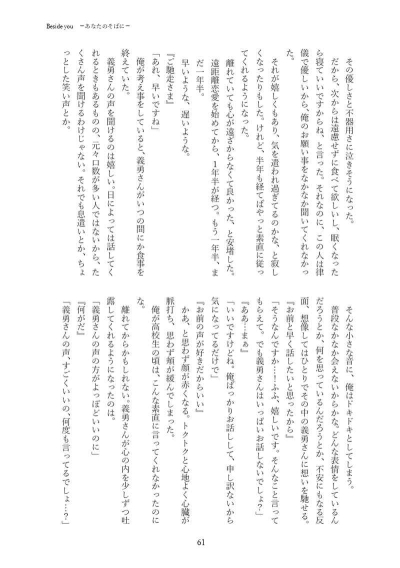 Beside you　－あなたのそばに－
その優しさと不器用さに泣きそうになった。
だから、次からは遠慮せずに食べて欲しいし、眠くなった
ら寝ていいですからね、と言った。それなのに、この人は律
儀で優しいから、俺のお願い事をなかなか聞いてくれなかっ
た。
それが嬉しくもあり、気を遣われ過ぎてるのかな、と寂し
くなったりもした。けれど、半年も経てばやっと素直に従っ
てくれるようになった。
離れていても心が遠ざからなくて良かった、と安堵した。
遠距離恋愛を始めてから、１年半が経つ。もう一年半、ま
だ一年半。
早いような、遅いような。
『ご馳走さま』
「あれ、早いですね」
俺が考え事をしていると、義勇さんがいつの間にか食事を
終えていた。
義勇さんの声を聞けるのは嬉しい。日によっては話してく
れるときもあるものの、元々口数が多い人ではないから、た
くさん声を聞けるわけじゃない。それでも息遣いとか、ちょ
っとした笑い声とか。
そんな小さな音に、俺はドキドキとしてしまう。
普段なかなか会えないからかな。どんな表情をしているん
だろうとか、何を思っているんだろうとか、不安にもなる反
面、想像してはひとりでその中の義勇さんに想いを馳せる。
『お前と早く話したいと思ったから』
「そうなんですか…！ふふ、嬉しいです。そんなこと言って
もらえて。でも義勇さんはいっぱいお話しないでしょ？」
『ああ…まぁ』
「いいですけどね。俺ばっかりお話しして、申し訳ないから
気になってるだけで」
『お前の声が好きだからいい』
かあ、と思わず顔が赤くなる。トクトクと心地よく心臓が
脈打ち、思わず頬が緩んでしまった。
俺が高校生の頃は、こんな素直に言ってくれなかったのに
な。
離れてからかもしれない。義勇さんが心の内を少しずつ吐
露してくれるようになったのは。
「義勇さんの声の方がよっぽどいいのに」
『何がだ』
「義勇さんの声、すごくいいの、何度も言ってるでしょ…？」
61